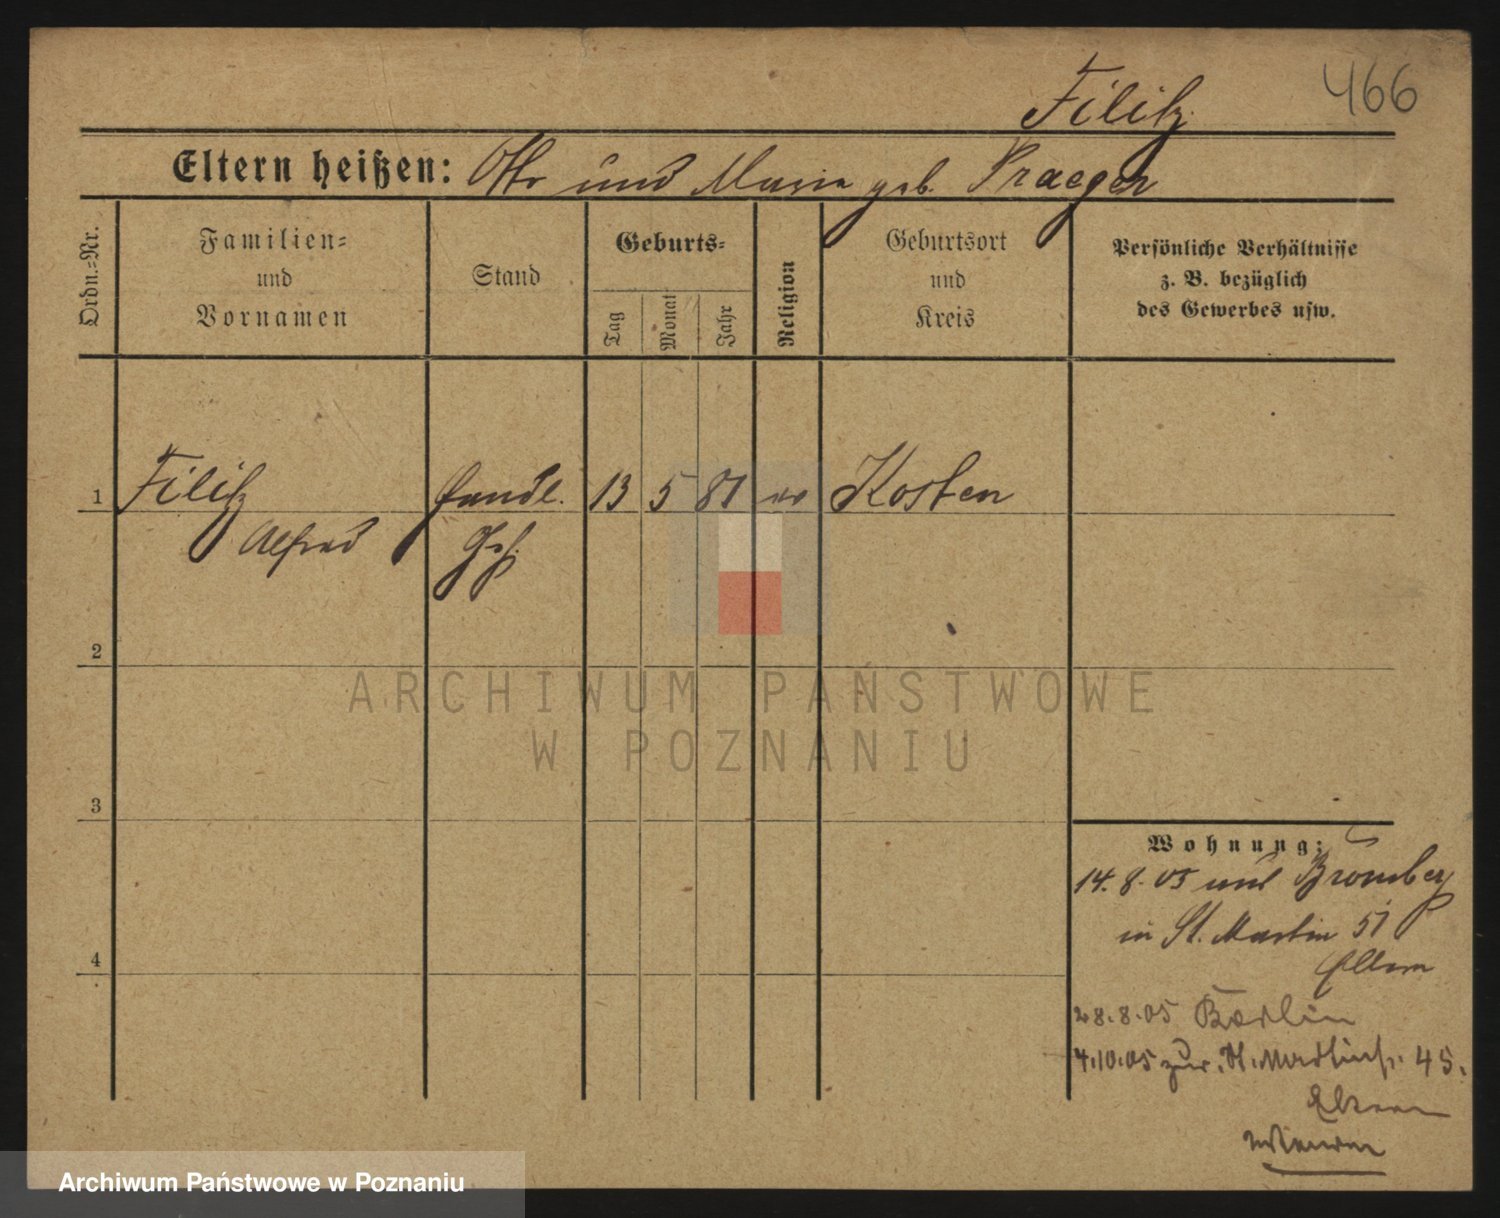 466
Filitz
Eltern heißen: Otto und Marie geb. Praeger
Ordn.-Nr.
Familien-
und
Vornamen
Stand
Geburts-
Tag
Monat
Jahr
Religion
Geburtsort
und
Kreis
Persönliche Verhältnisse
z. B. bezüglich
des Gewerbes usw.
1 Filitz Handl. 13 5 81 ev Kosten
Alfred Geh.
2
3
4
Wohnung:
14.8.05 aus Bromberg
in St. Martin 51
Eltern
28.8.05 Berlin
4.10.05 zur. St. Martinstr. 45.
Eltern
ARCHIWUM PAŃSTWOWE
W POZNANIU
Archiwum Państwowe w Poznaniu